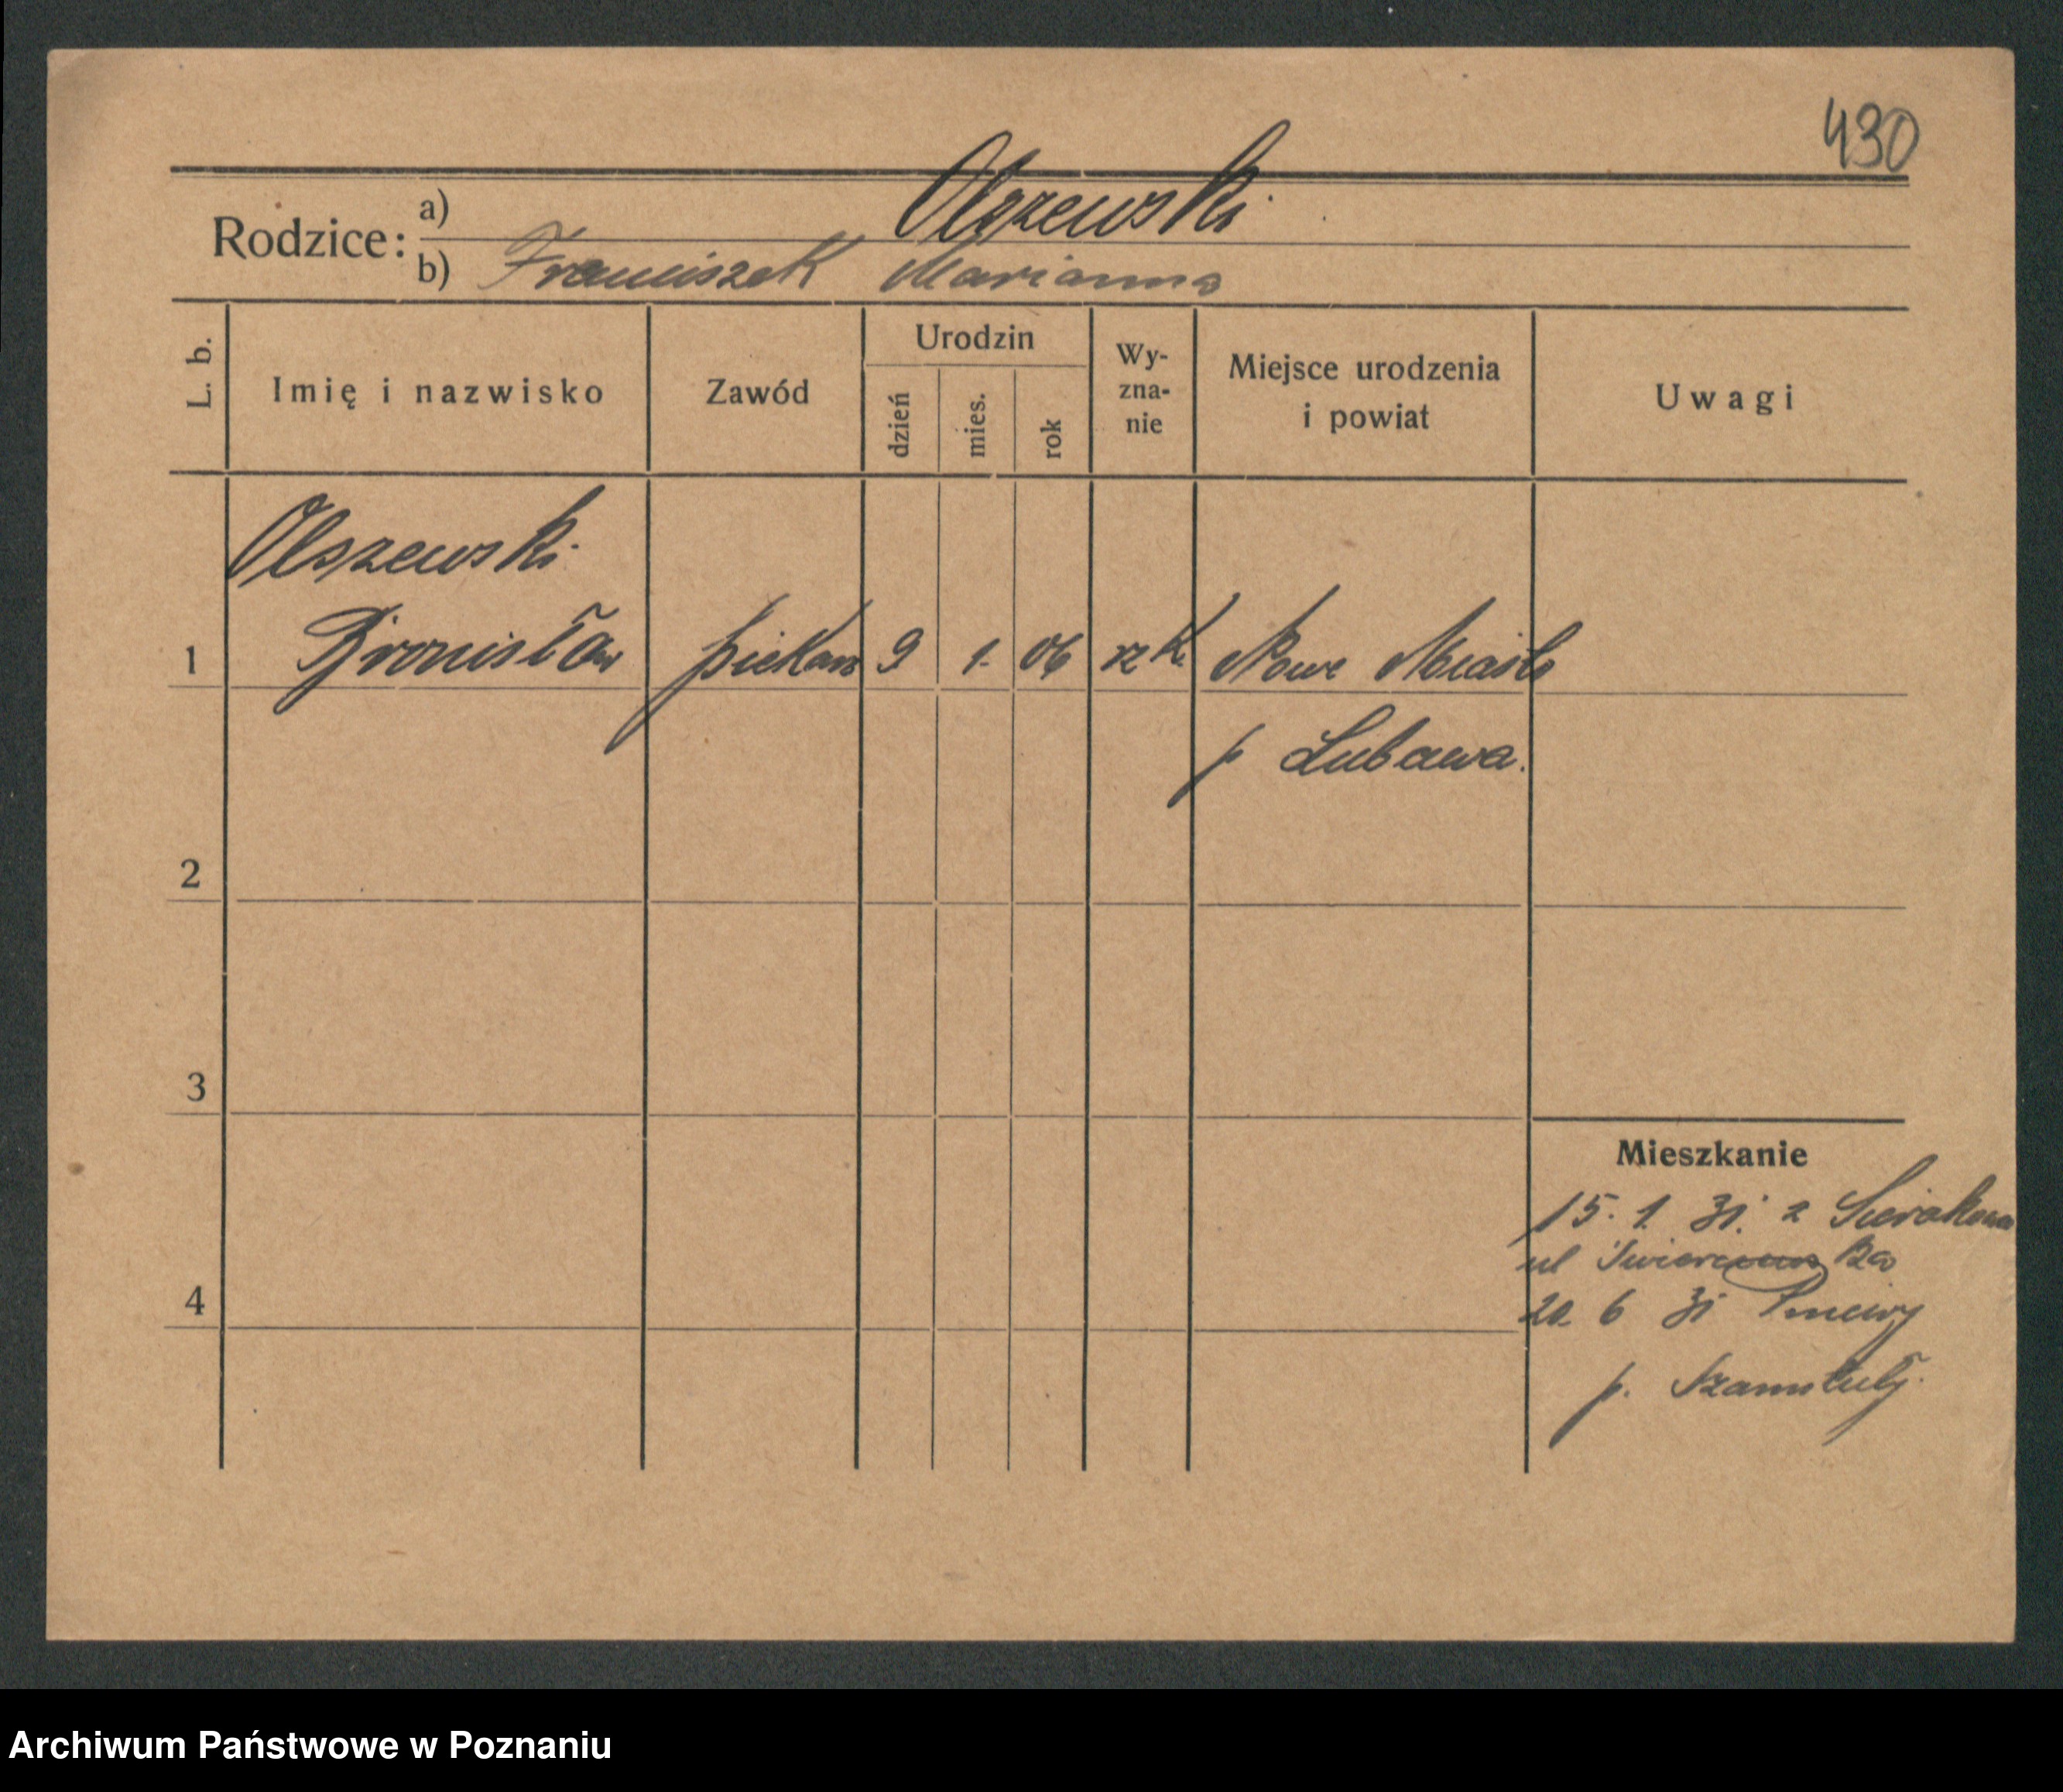 430
Rodzice:
a) Olszewski
b) Franciszek Marianna
L. b.
Imię i nazwisko
Zawód
Urodzin
dzień
mies.
rok
Wy-
zna-
nie
Miejsce urodzenia
i powiat
Uwagi
Olszewski
1 Bronisław piekarz 9 1. 06 rzK. Nowe Miasto
p Lubawa.
2
3
Mieszkanie
15. 1. 31. z Sierakowa
ul
4
20. 6 31 Pniewy
p. Szamotuły.
Archiwum Państwowe w Poznaniu